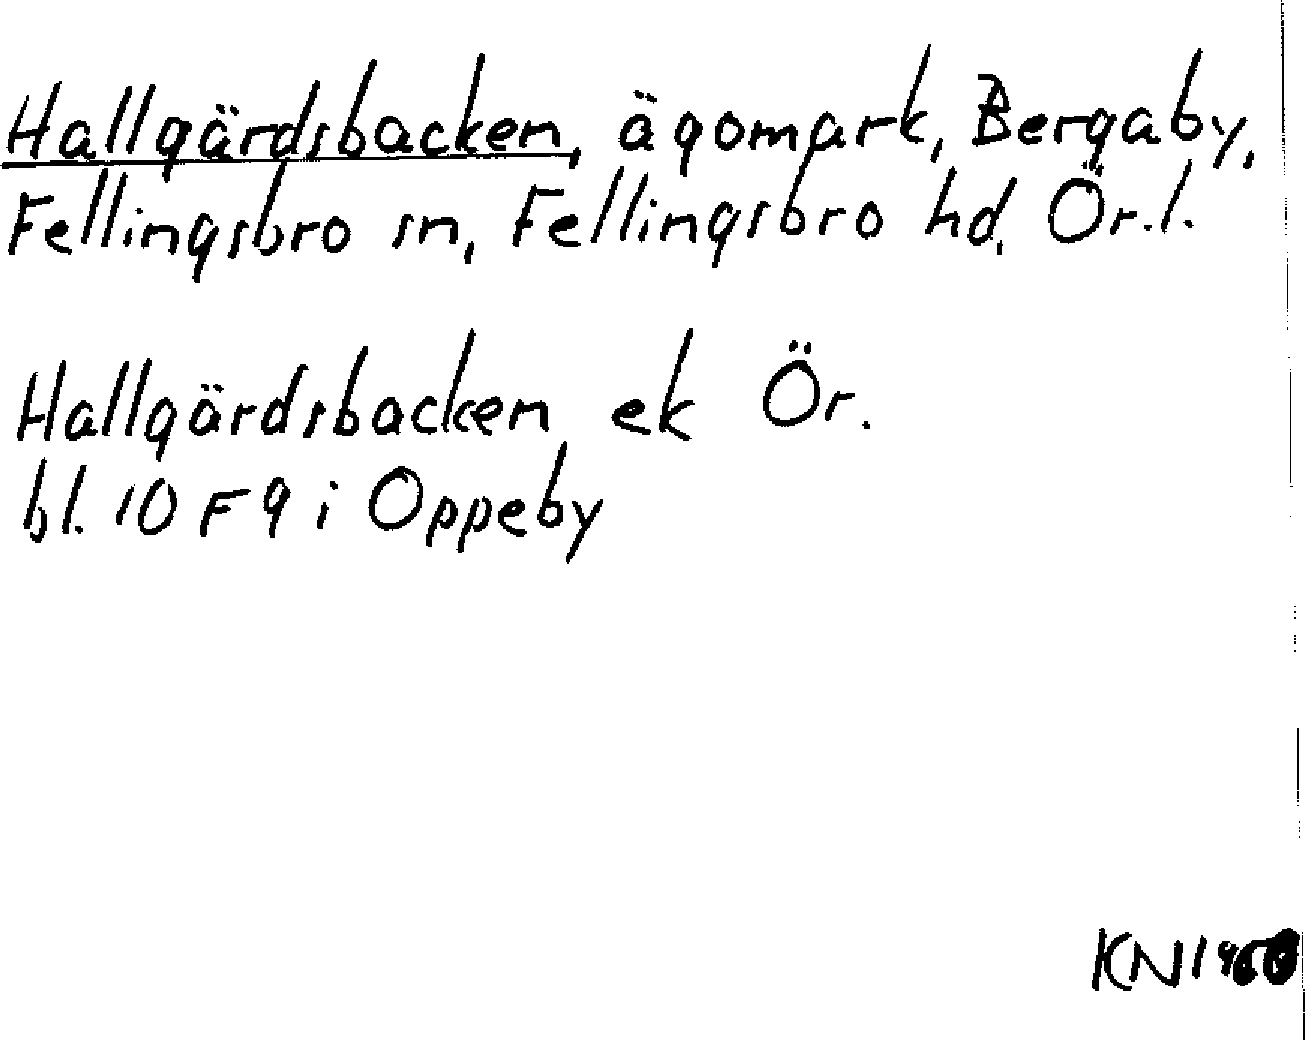 Hallgärdsbacken, ägomark, Bergaby,
Fellingsbro sn, Fellingsbro hd, Ör.l.
Hallgärdsbacken ek Ör.
bl. 10 F 9 i Oppeby
KN